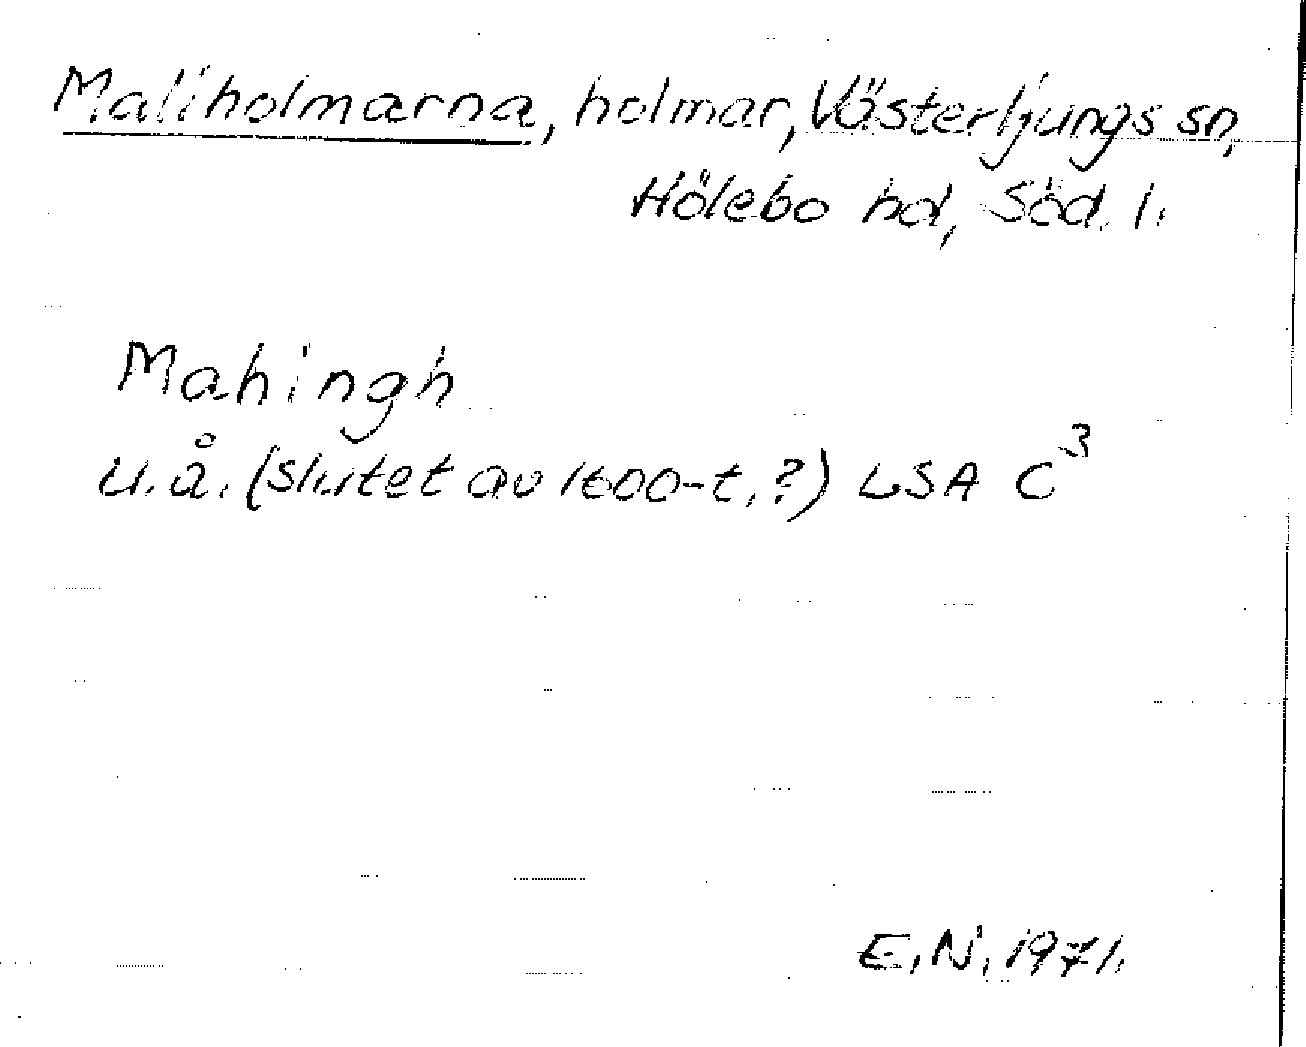 Maliholmarna, holmar, Västerljungs sn,
Hölebo hd, Söd. l.
Mahingh
u.å. (slutet av 1600-t.?) LSA C³
E.N. 1971.